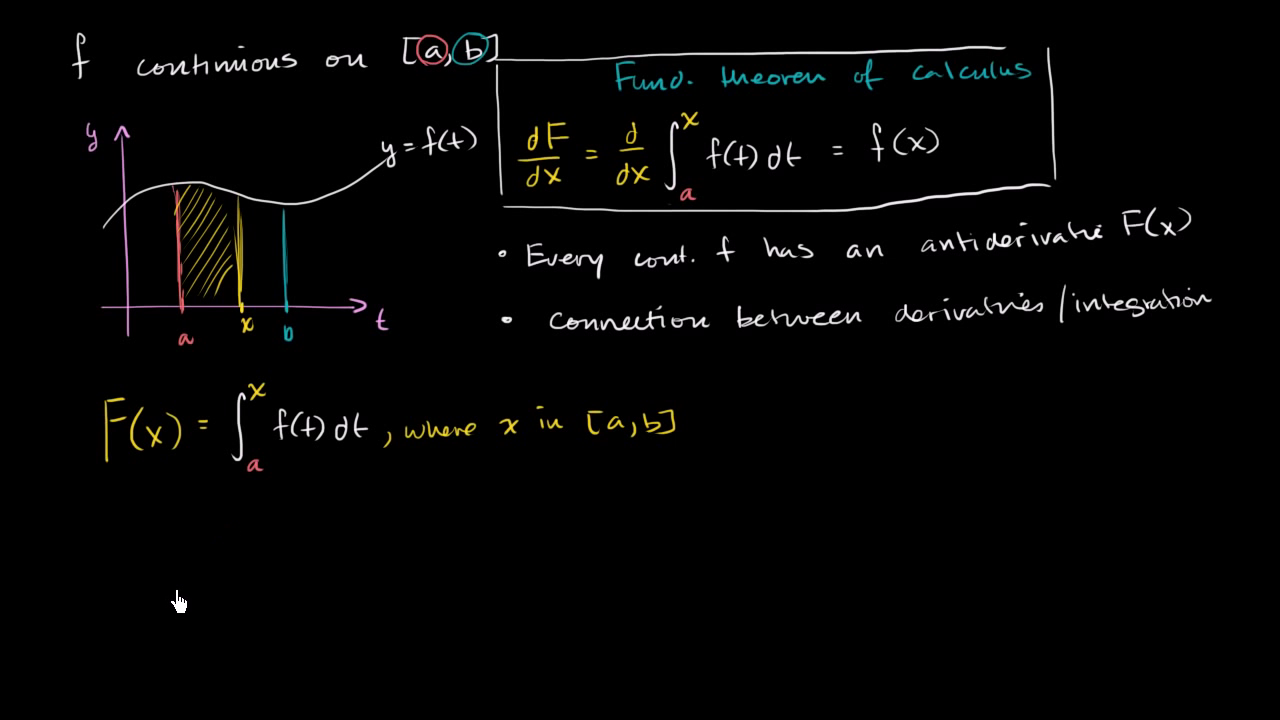 f continuous on [a,b]
Fund. theorem of calculus
dF/dx = d/dx ∫_a^x f(t) dt = f(x)
y
y = f(t)
a
x
b
t
• Every cont. f has an antiderivative F(x)
• connection between derivatives/integration
F(x) = ∫_a^x f(t) dt, where x in [a,b]